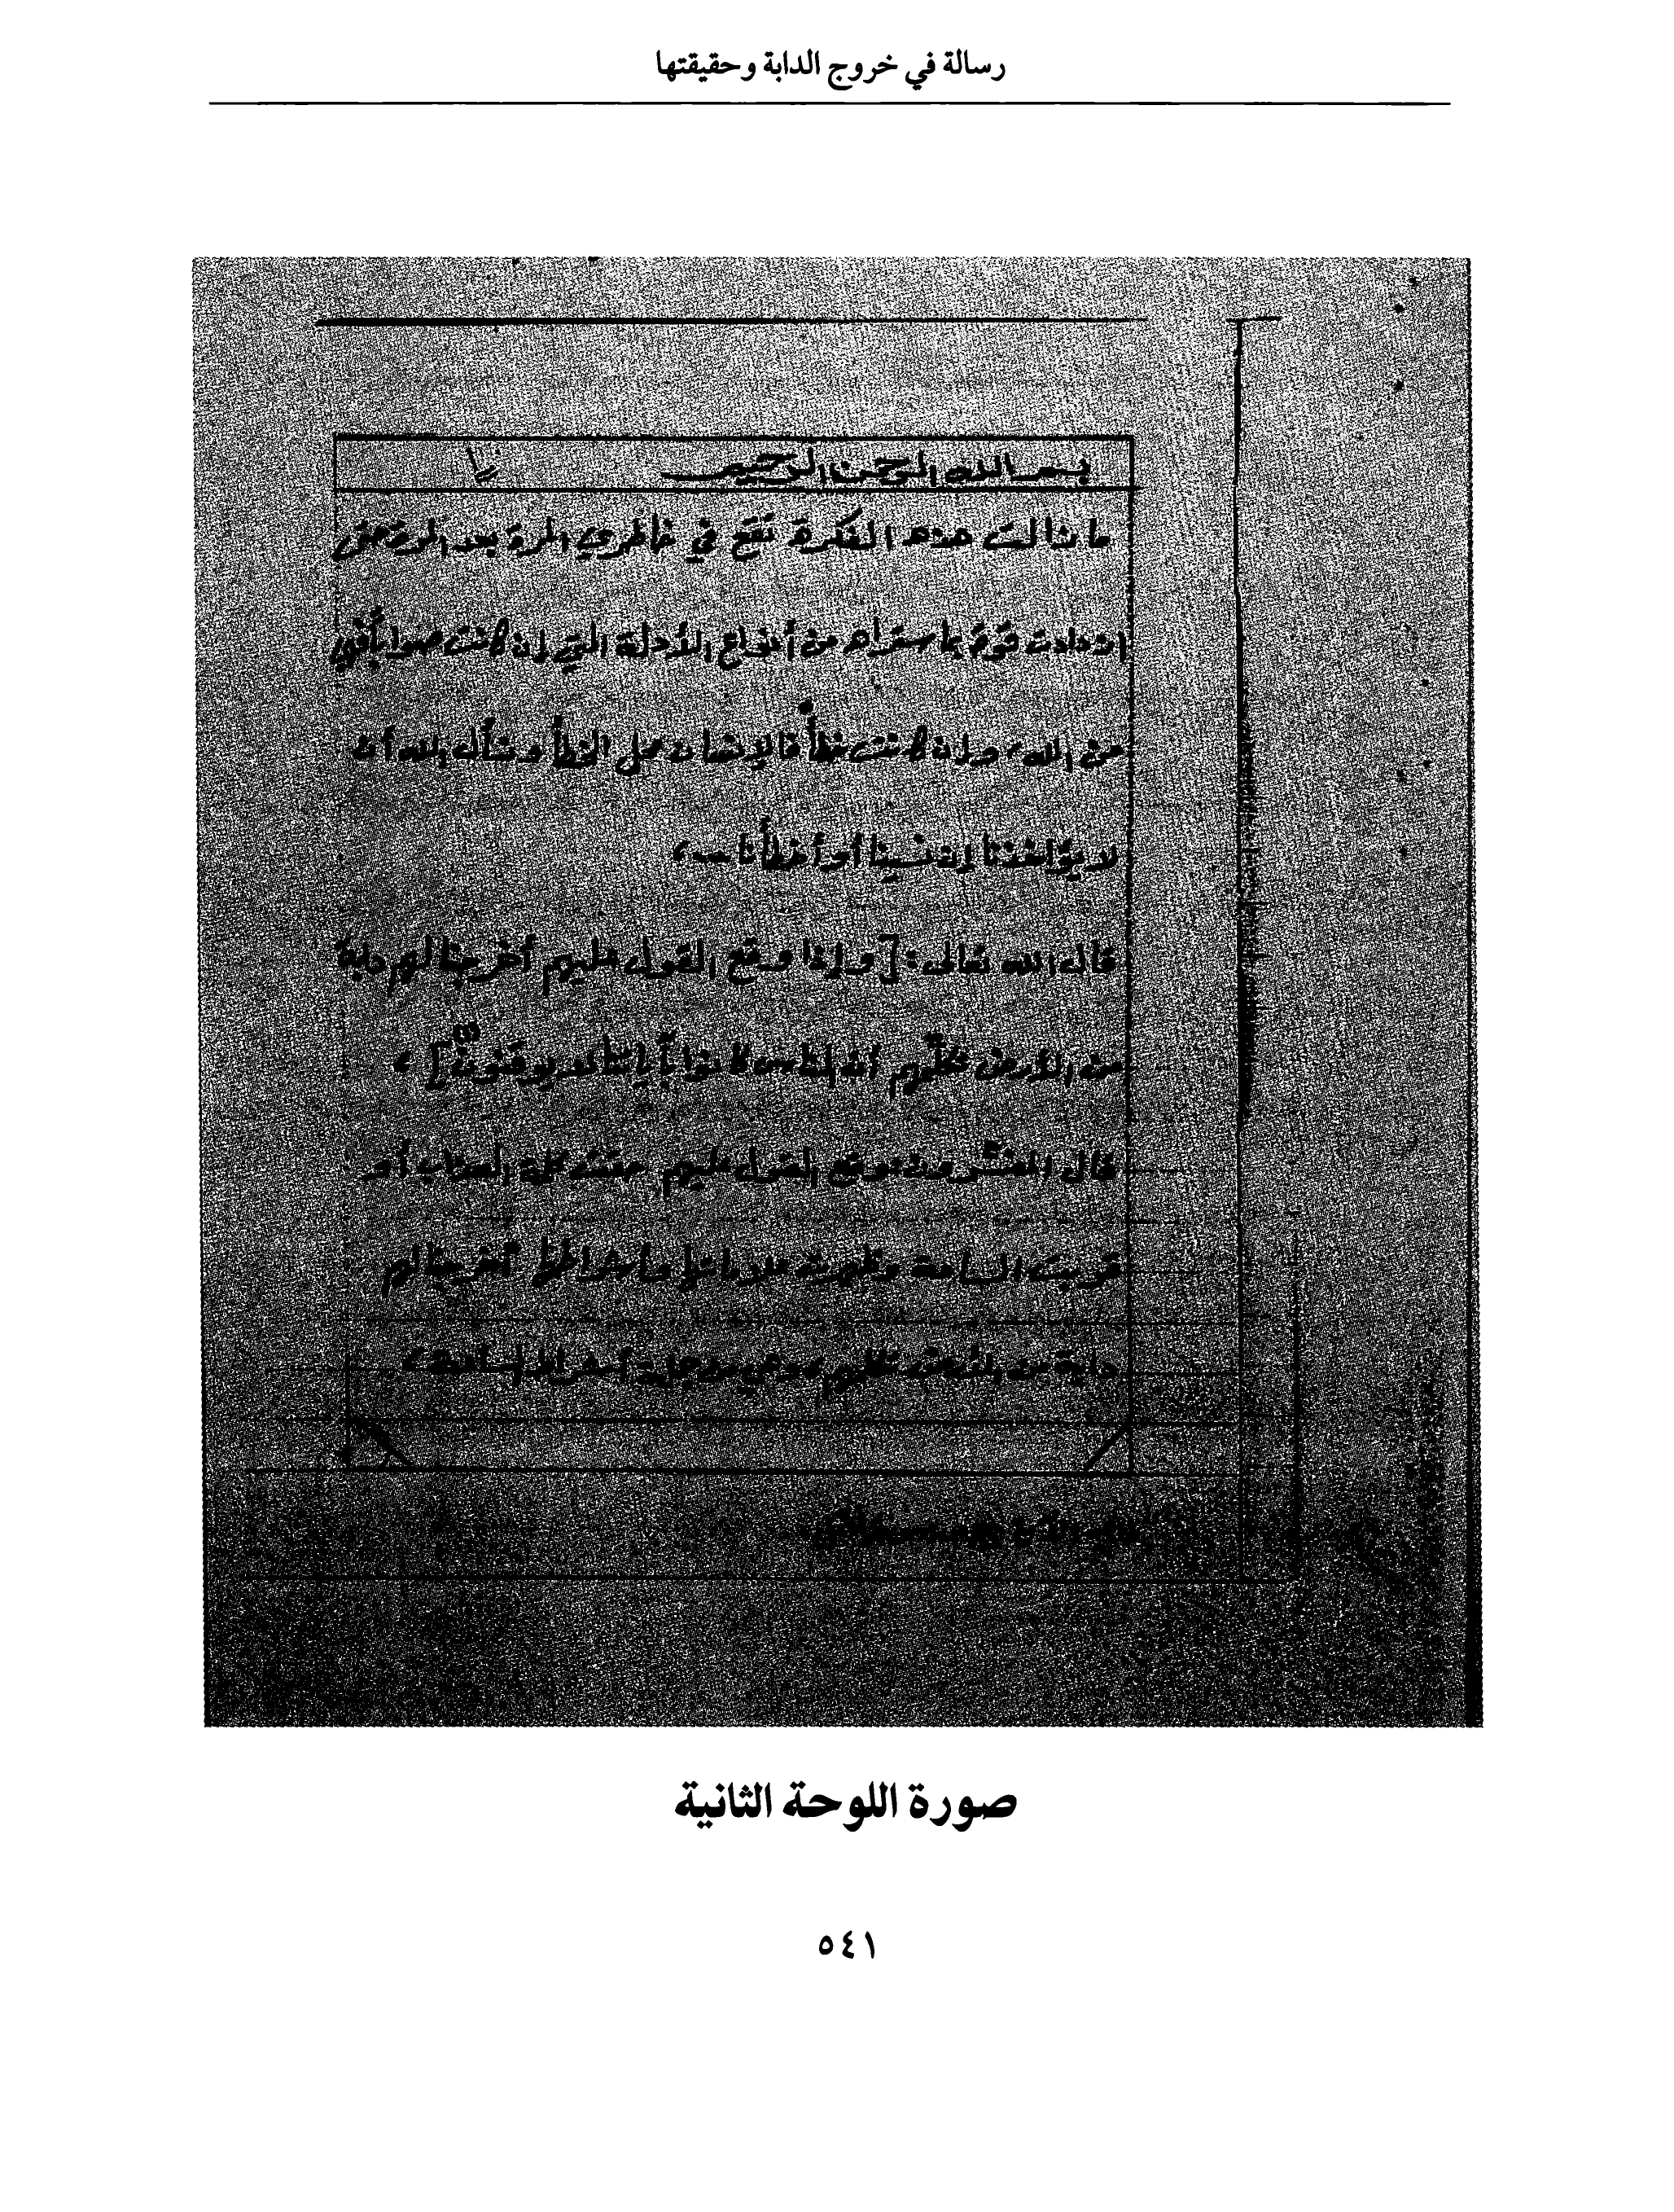 رسالة في خروج الدابة وحقيقتها
بسم الله الرحمن الرحيم
ما زالت هذه الفكرة تقع في خاطري المرة بعد المرة حتى
ازدادت قوة بما سنراه من أنواع الأدلة التي إن كانت صوابًا فهي
من الله، وإن كانت خطأ فالإنسان محل الخطأ ونسأل الله أن
لا يؤاخذنا إن نسينا أو أخطأنا ،
قال الله تعالى: [وإذا وقع القول عليهم أخرجنا لهم دابة
من الأرض تكلّمهم أن الناس كانوا بآياتنا لا يوقنون (١)] ،
قال المفسّرون: وقع القول عليهم حقت كلمة العذاب أو
قربت الساعة وظهرت علاماتها وأشراطها أخرجنا لهم
دابة من الأرض تكلمهم، وهي من جملة أشراط الساعة ،
صورة اللوحة الثانية
٥٤١